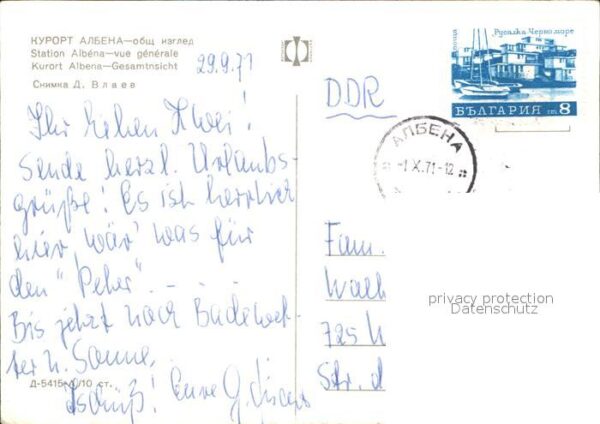 КУРОРТ АЛБЕНА—общ изглед
Station Albéna—vue générale
Kurort Albena—Gesamtsicht
Снимка Д. Влаев
29.9.71
Ihr lieben Zwei!
Sende herzl. Urlaubs-
grüße! Es ist herrlich
hier wär' was für
den "Peter". —
Bis jetzt noch Badewet-
ter u. Sonne.
Tschüß! Eure G.
Д-5415-
/10 ст.
DDR
поща
Русалка-Черно море
БЪЛГАРИЯ ст. 8
АЛБЕНА
-1.X.71-12
Fam.
725
Str. d
privacy protection
Datenschutz